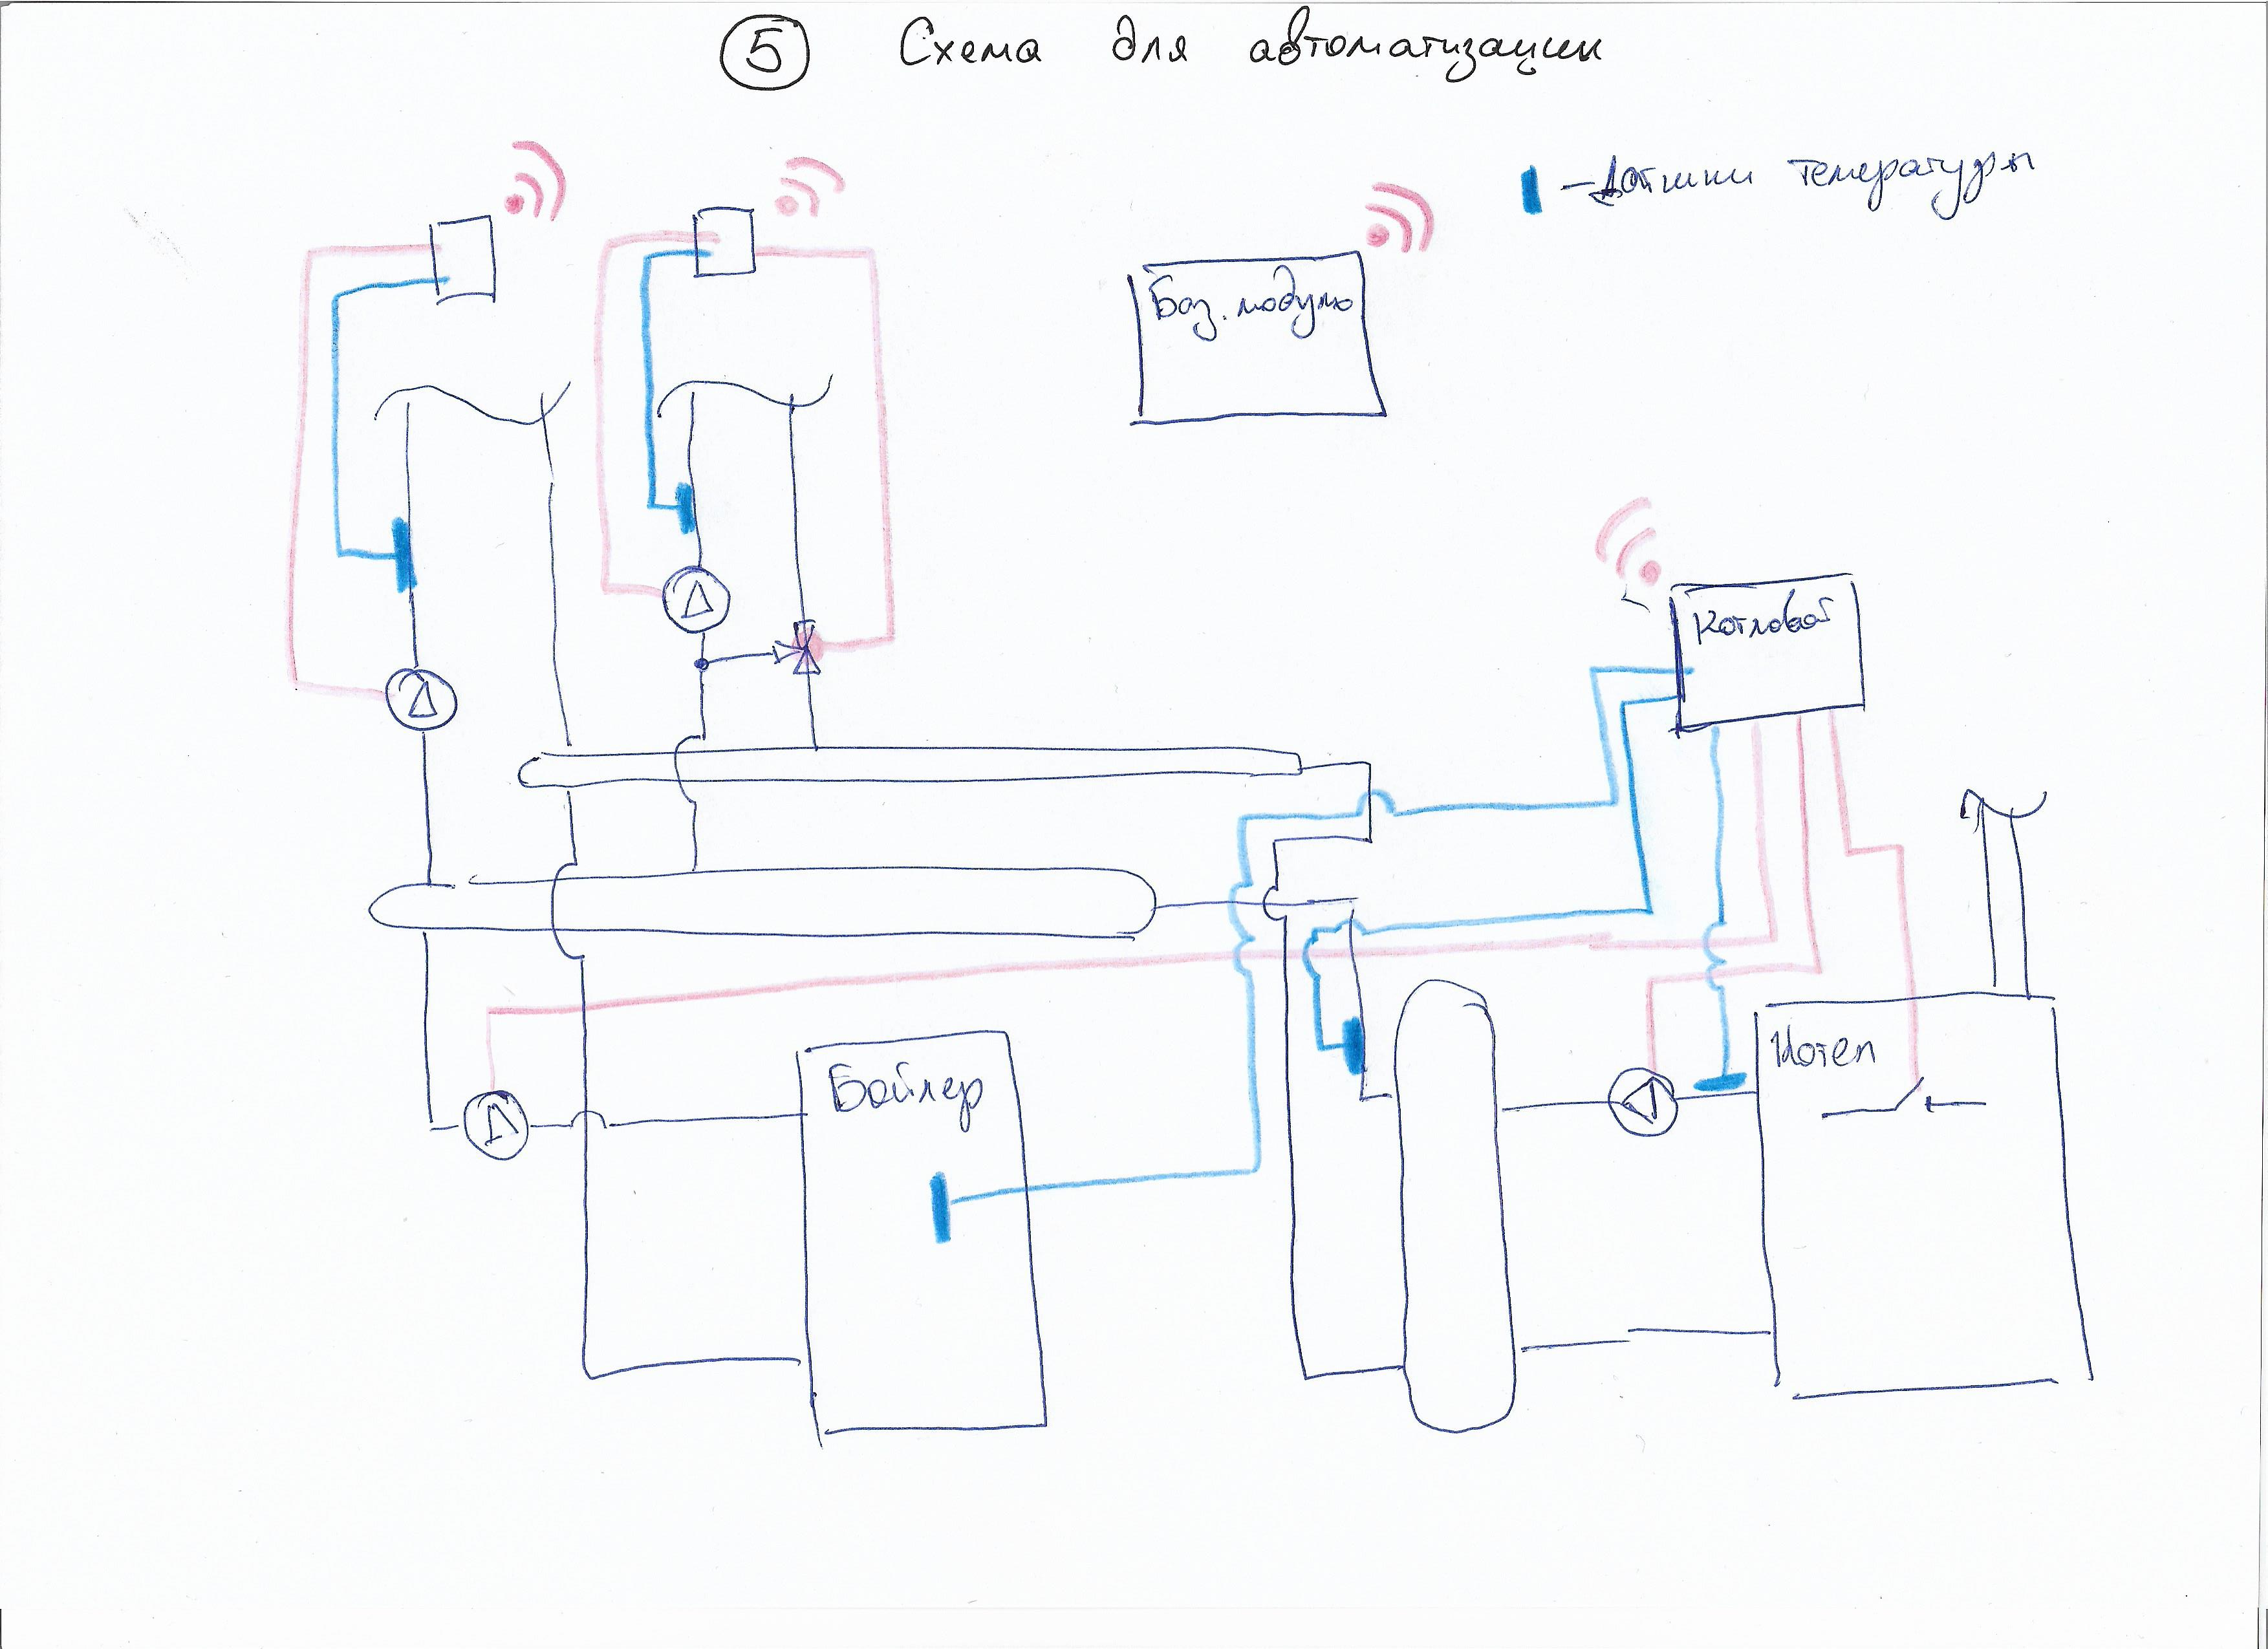 5 Схема для автоматизации
- Датчики температуры
Баз. модуль
Котловой
Котел
Бойлер